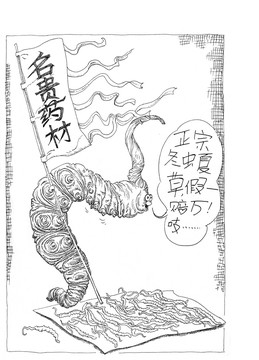 名贵药材
正宗
冬虫夏
草假
赔万!
吱……